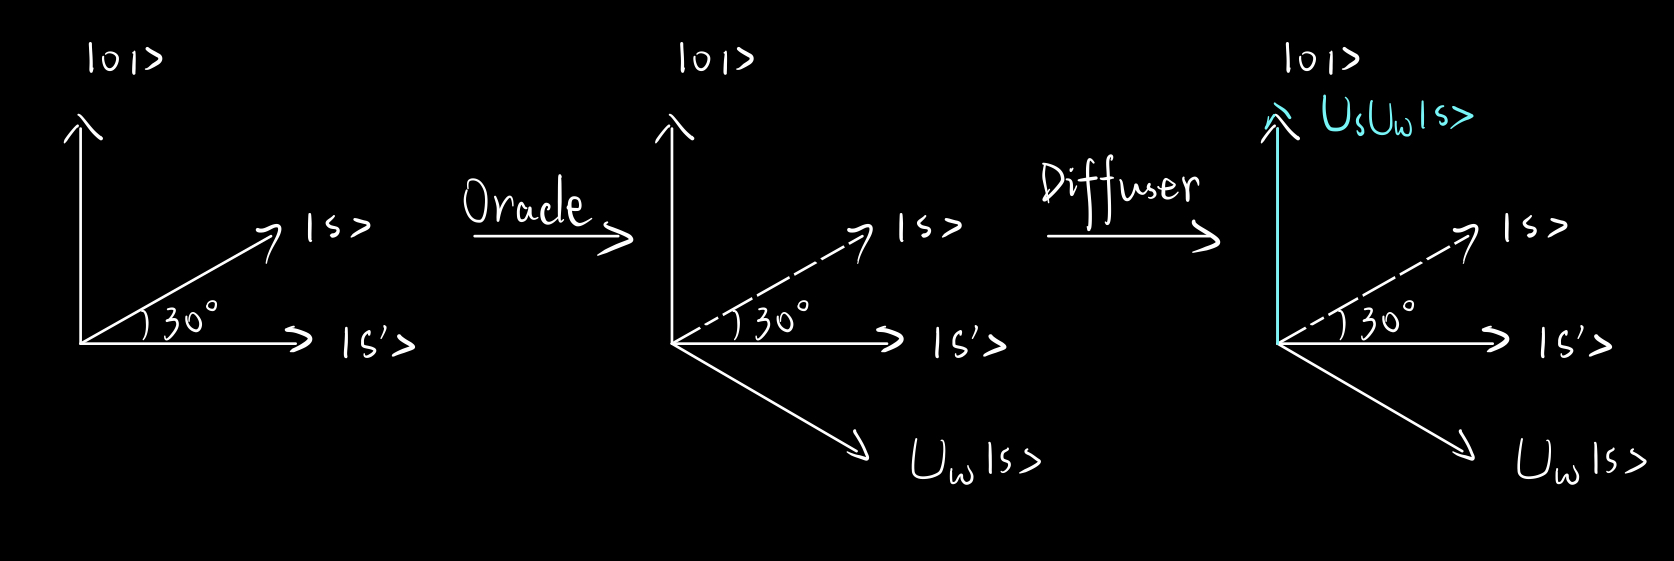 |01>
|s>
30°
|s'>
Oracle
|01>
|s>
30°
|s'>
Uw|s>
Diffuser
|01>
UsUw|s>
|s>
30°
|s'>
Uw|s>